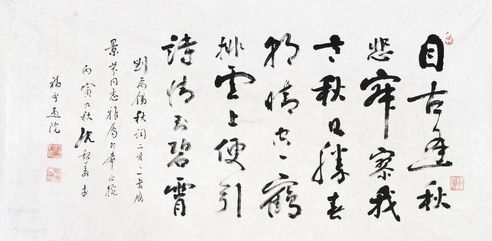 自古逢秋
悲寂寥我
言秋日勝春
朝晴空一鶴
排雲上便引
詩情到碧霄
劉禹錫秋詞二首之一
同志雅屬
丙寅九秋沈